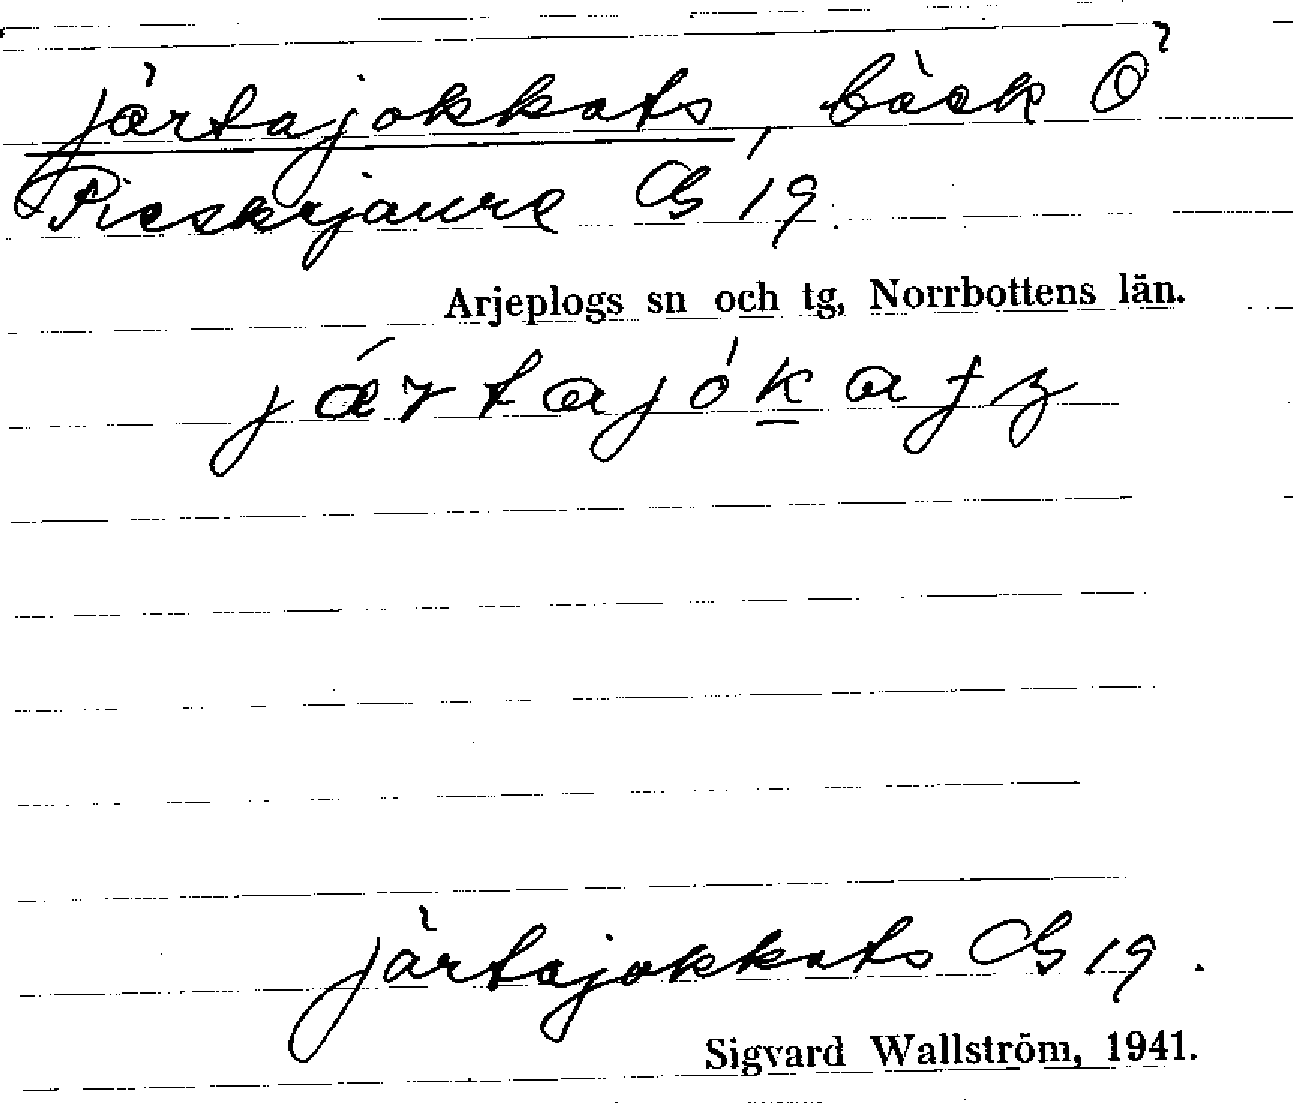 järtajokkats, bäck Ö
Pieskejaure GS 19.
Arjeplogs sn och tg, Norrbottens län.
jártajókatz
järtajokkats GS 19.
Sigvard Wallström, 1941.